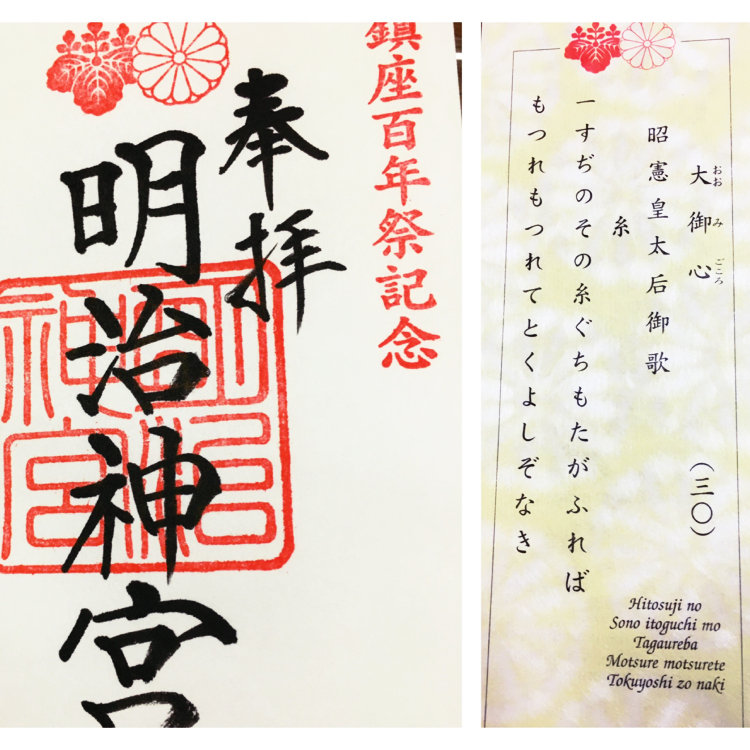 鎮座百年祭記念
奉拝
明治神宮
明治神宮
大御心 (三〇)
おお み ごころ
昭憲皇太后御歌
糸
一すぢのその糸ぐちもたがふれば
もつれもつれてとくよしぞなき
Hitosuji no
Sono itoguchi mo
Tagaureba
Motsure motsurete
Tokuyoshi zo naki